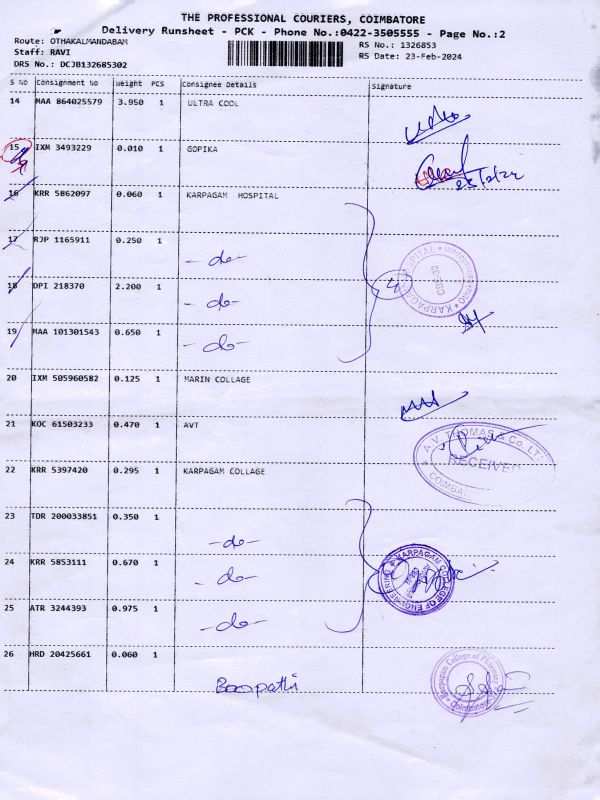 THE PROFESSIONAL COURIERS, COIMBATORE
Delivery Runsheet - PCK - Phone No.:0422-3505555 - Page No.:2
Route: OTHAKALMANDABAM
Staff: RAVI
DRS No.: DCJB132685302
RS No.: 1326853
RS Date: 23-Feb-2024
S NO Consignment No Weight PCS Consignee Details Signature
14 MAA 864025579 3.950 1 ULTRA COOL
15 IXM 3493229 0.010 1 GOPIKA
16 KRR 5862097 0.060 1 KARPAGAM HOSPITAL
17 RJP 1165911 0.250 1 -do-
18 DPI 218370 2.200 1 -do-
19 MAA 101301543 0.650 1 -do-
4
20 IXM 505960582 0.125 1 MARIN COLLAGE
21 KOC 61503233 0.470 1 AVT
A.V. THOMAS & Co. LTD
RECEIVED
COIMBATORE
22 KRR 5397420 0.295 1 KARPAGAM COLLAGE
23 TDR 200033851 0.350 1 -do-
24 KRR 5853111 0.670 1 -do-
KARPAGAM COLLEGE OF ENGINEERING
25 ATR 3244393 0.975 1 -do-
26 HRD 20425661 0.060 1
Boopathi
Karpagam College of Pharmacy
Coimbatore